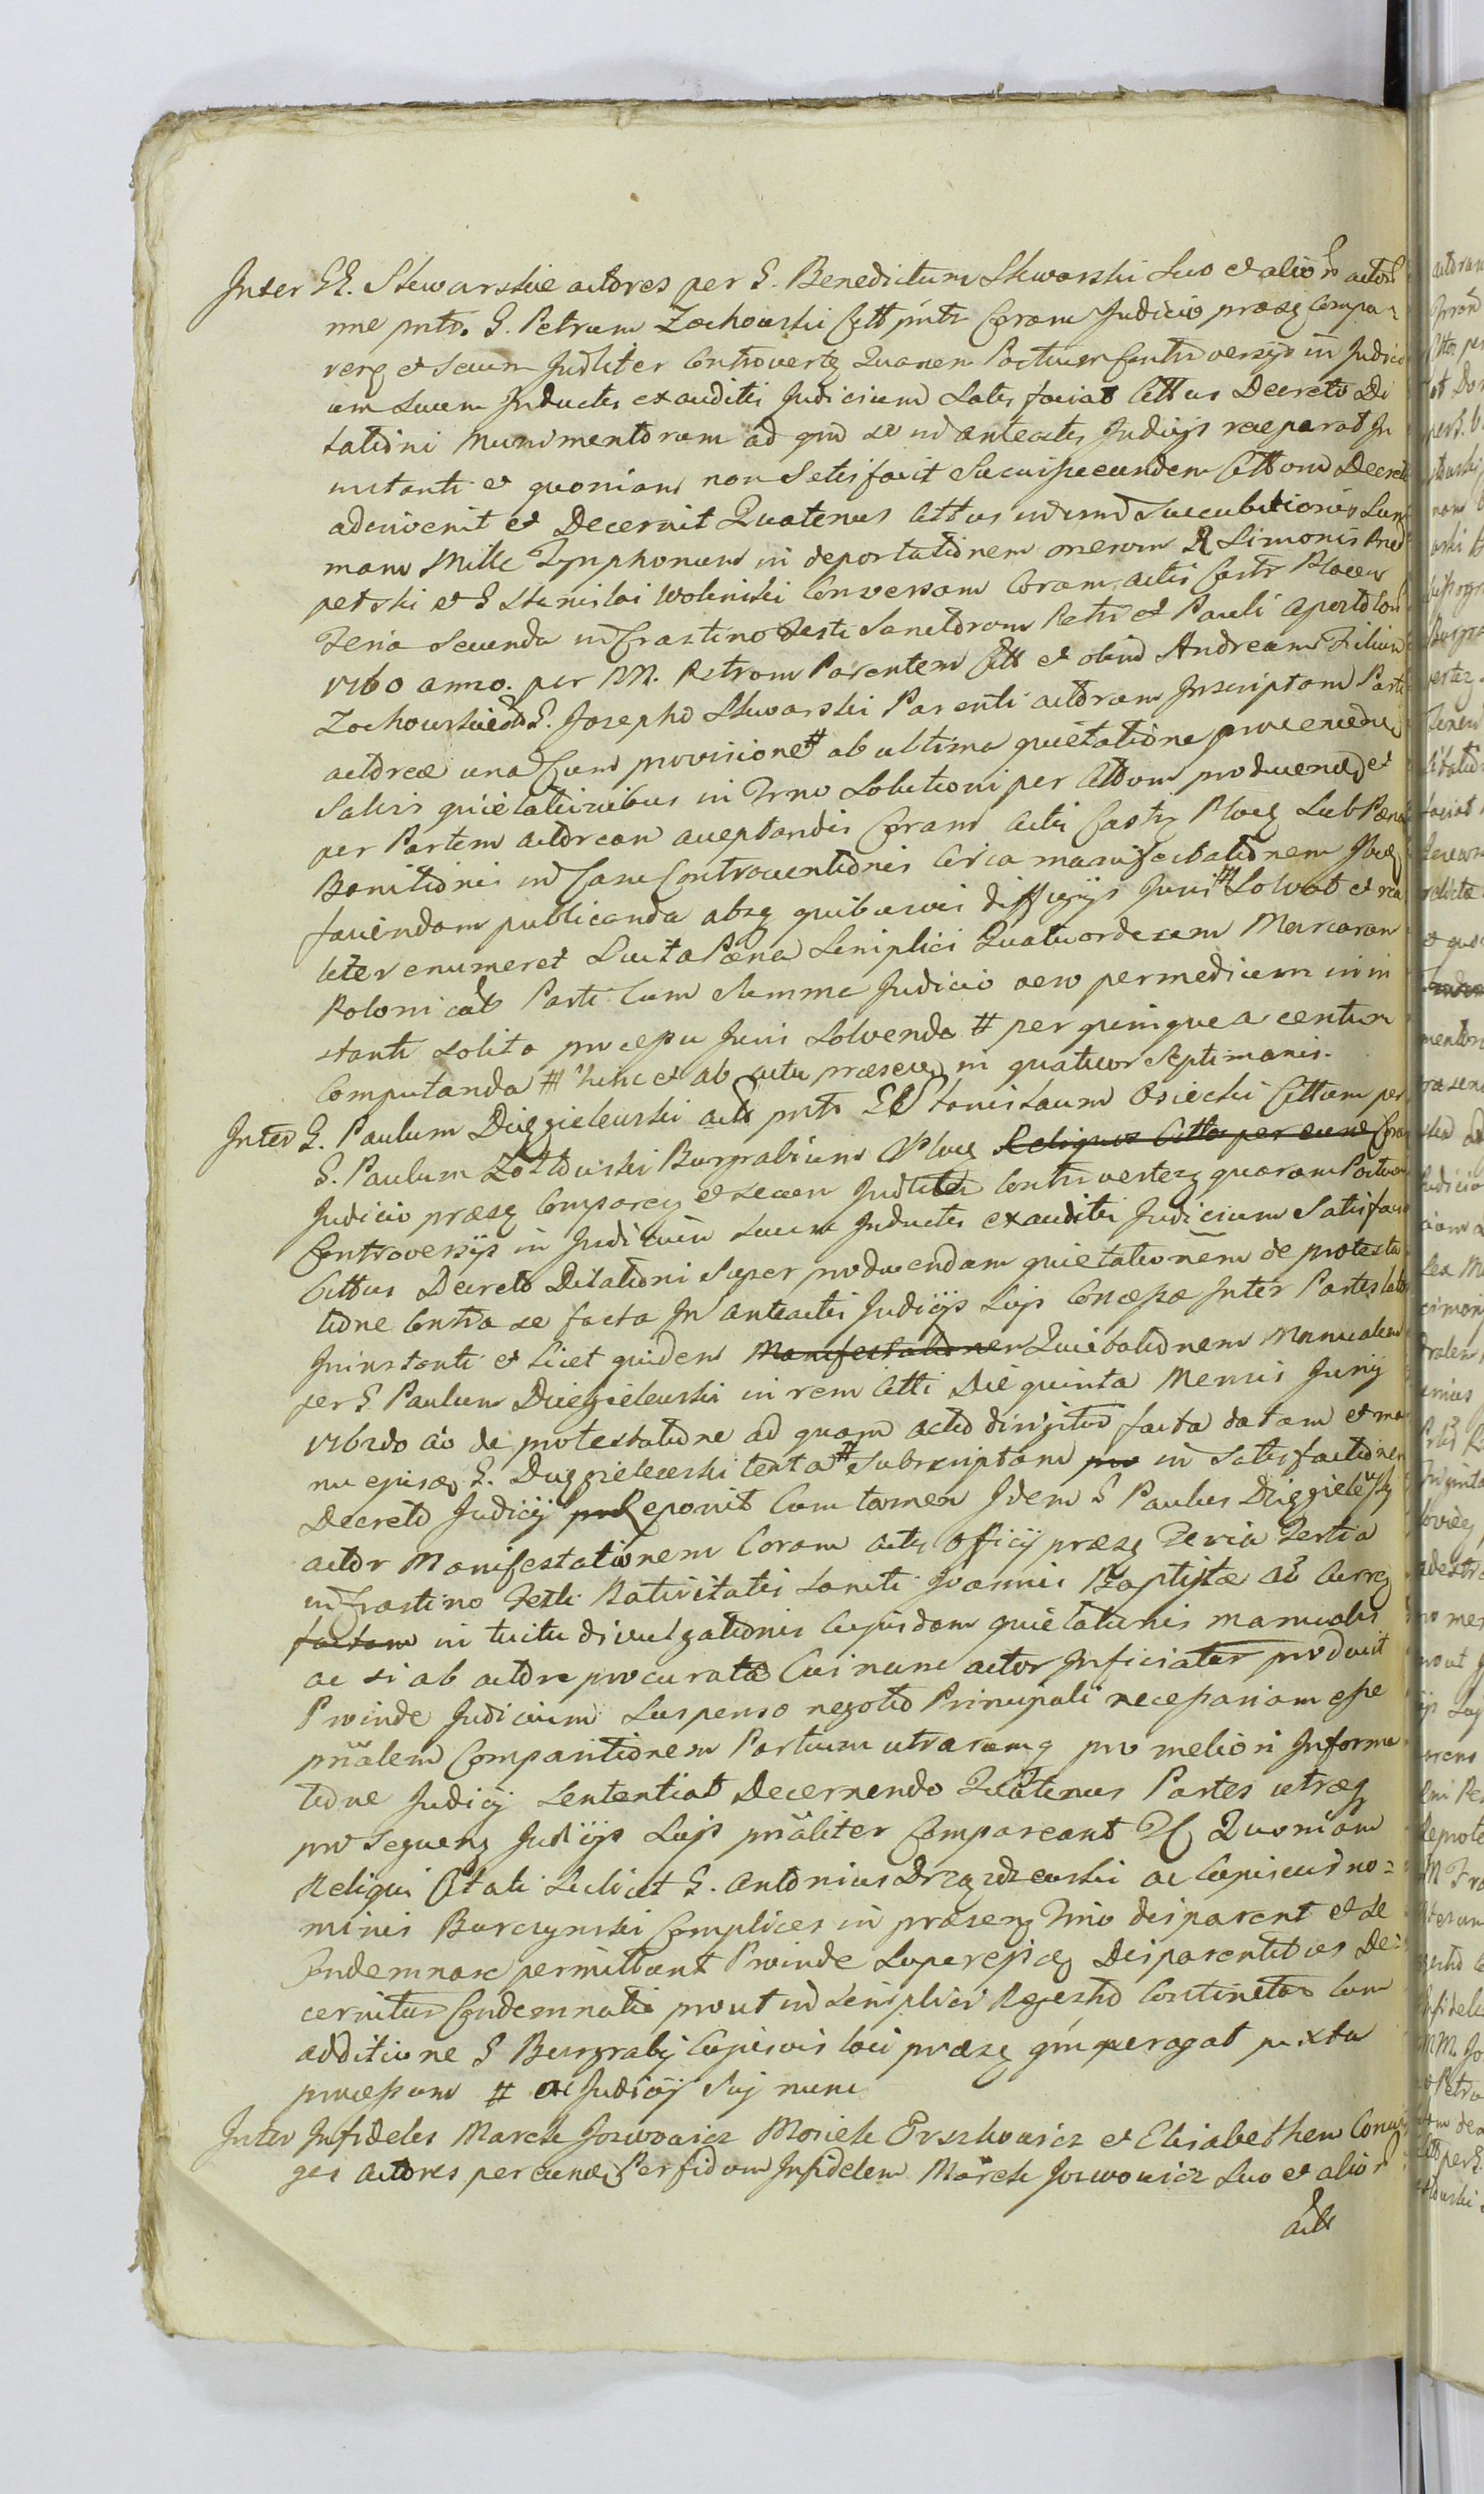 Inter GG. Skwarskie actores per G. Benedictum Skwarski suo et alior actor
nne pntr. G. Petrum Zochowski Citt pntr Coram Judicio præsq Compa-
req et secum Judliter Controverteq Quarum Partium Controversijs in Judici
um suum Inductis exauditis Judicium satis faciat Cittus Decreto Di
lationi munimentorum ad qnd se in anteactis Judicijs reeperat In
instanti et quoniam non satisfacit succubuisse eundem Cittum Decreto
adinvenit et Decernit Quatenus Cittus in succubitionis sum
mam Mille Tynphonum in deportationem onerum R Simonis
petski et G Stanislai Wolinski Conversam Coram actis Castr Plocen
Feria secunda in Crastino Festi Sanctorum Petri et Pauli Apostolor
1760 anno. per MM. Petrum Parentem Citt et olim Andream Filium
Zochowskie G. Josepho Skwarski Parenti actorum Inscriptam Parti
actoreæ una Cum provisione # ab ultima quietatione proveniend
salvis quietationibus in Trno solutioni per Cittum producend et
per Partem actoream acceptandis Coram actis Castr Plocq sub Pæna
Banitionis in Casu Controventionis Circa manifestationem
faciendam publicanda absq quibusvis diffugijs Juris # solvat et rea
liter enumeret Luita Pæna simplici Quatuordecem Marcarum
Polonical Parti Cum summa Judicio vero permedium in in
stanti solita processu Juris solvenda # per quinque a centum
Computanda # hinc et ab actu præsen in quatuor septimanis.
Inter G. Paulum Dzięgielewski act pntr G Stanislaum Osiecki Cittum per
G. Paulum Zołtowski Burgrabium Plocq Reliquos Cittos per eund Coram
Judicio præsq Comparcq et secum Judliter Controverteq quorum Partium
Controversijs in Judicium suum Inductis exauditis Judicium satisfacit
Cittus Decreto Dilationi super producendam quietationem de protesta
tione Contra se facta In anteactis Judicijs suis Concessæ Inter Partes lato
Ininstanti et licet quidem Manifestationem Quietationem Manualem
per G Paulum Dzięgielewski in rem Citti Die quinta Mensis Junij
1762do ao de protestatione ad quam actio dirigitur facta datam et ma
nu ejusd G. Dzięgielewski tenta # subscriptam pro in satisfactionem
Decreto Judicij pro Reponit Cum tamen Idem G Paulus Dzięgielewski
actor Manifestationem Coram actis officij præsq Feria Tertia
in Crastino Festi Nativitatis Sancti Joannis Baptistæ ao Curreq
factam in tuitu divulgationis Cujusdam quietationis manualis
ac si ab actore procurata Cui nunc actor Inficiatur producit
Proinde Judicium suspenso negotio Principali necessariam esse
prsalem Comparitionem Partium utrarumq pro meliori Informa
tione Judicij sententiat Decernendo Quatenus Partes utræq
pro sequenq Judicijs suis prsaliter Compareant Et Quoniam
Reliqui Citati scilicet G. Antonius Drzązdzewski ac Cujusvis no=
minis Burczynski Complices in præsenq Trno disparent et se
Condemnare permittunt Proinde super ejsdq Disparentibus De=
cernitur Condemnatio prout in simplici Regestro Continetur Cum
additione G Burgrabij Cujusvis loci præsq qui peragat juxta
processum # ex Judicij suj nunc
Inter Infideles Marek Jozwowicz Mosiek Erszkowicz et Elisabethem Conju
ges Actores per eund Perfidum Infidelem Marek Jozwowicz suo et alior
act